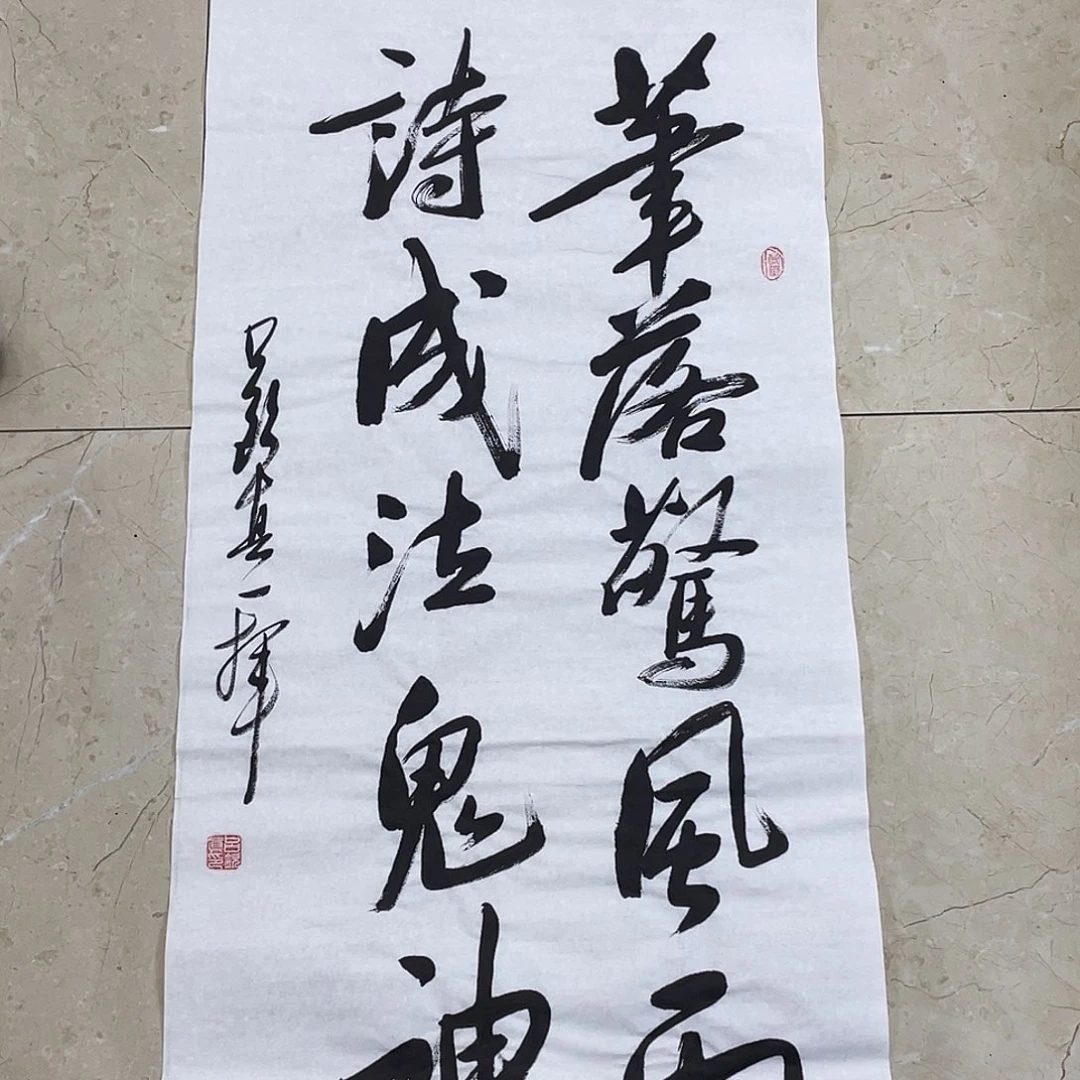 筆落驚風雨
詩成泣鬼神
真一揮